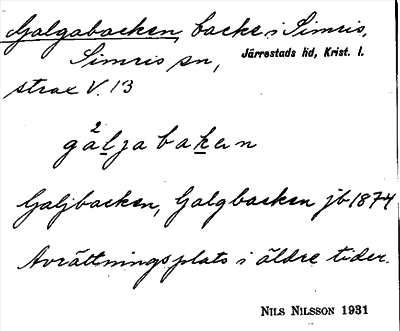 Galgabacken, backe i Simris,
Simris sn, Järrestads hd, Krist. l.
strax V. 13
gàljabakern
Galjbacken, Galgbacken jb 1874
Avrättningsplats i äldre tider.
NILS NILSSON 1931